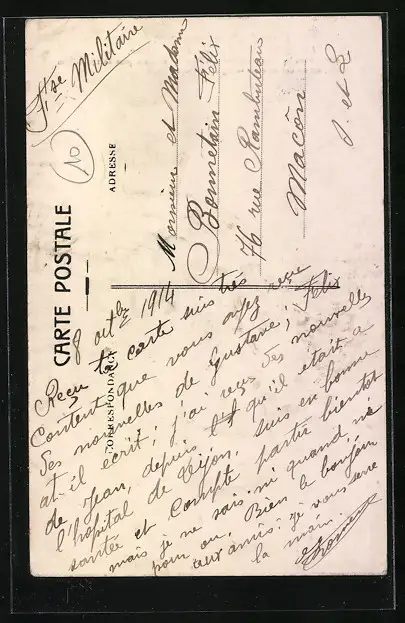 Fse Militaire
10
CARTE POSTALE
CORRESPONDANCE
ADRESSE
Monsieur et Madame
Bonnetain Félix
76 rue Rambuteau
Macon
S et L
8 octbre 1914
Reçu ta carte suis très
Content que vous ayez reçu
des nouvelles de Gustave; Félix
at-il ecrit; j'ai reçu des nouvelles
de Jean, depuis l' qu'il etait a
l'hôpital de Dijon, suis en bonne
santée et compte partir bientot
mais je ne sais ni quand ni
pour ou. Bien le bonjour
aux amis. Je vous serre
la main.